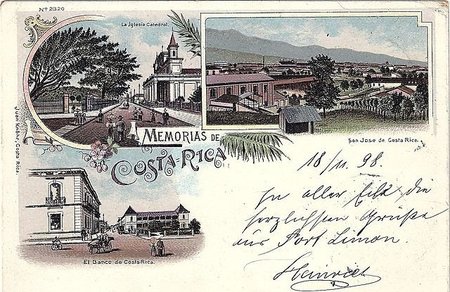 Nº 2326
La Iglesia Catedral.
MEMORIAS DE
COSTA-RICA
San José de Costa Rica.
El Banco de Costa-Rica.
18/11. 98.
In aller Eile die
herzlichsten Grüße
aus Port Limon.
Heinrich